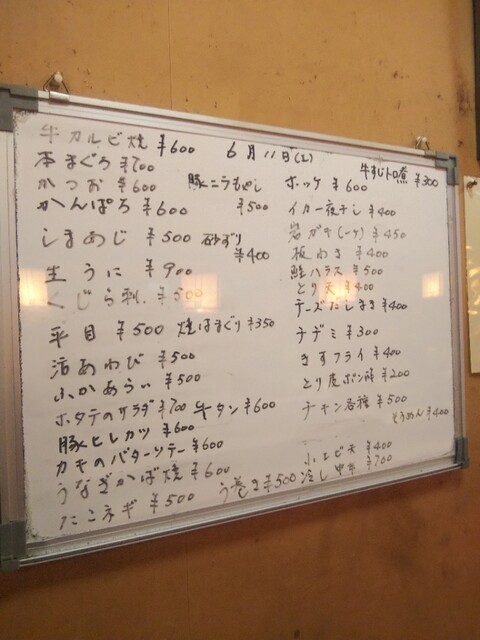 牛カルビ焼 ¥600
6月11日(土)
牛すじトロ煮 ¥300
本まぐろ ¥700
かつお ¥600
豚ニラもやし ¥500
ホッケ ¥600
かんぱち ¥600
イカ一夜干し ¥400
しまあじ ¥500
砂ずり ¥400
岩ガキ(一ヶ) ¥450
板わさ ¥400
生うに ¥900
鮭ハラス ¥500
くじら刺 ¥500
とり天 ¥400
チーズだしまき ¥400
平目 ¥500
焼はまぐり ¥350
ナデミ ¥300
活あわび ¥500
きすフライ ¥400
ふかあらい ¥500
とり皮ポン酢 ¥200
ホタテのサラダ ¥700
牛タン ¥600
チャン各種 ¥500
そうめん ¥400
豚ヒレカツ ¥600
カキのバターソテー ¥600
小エビ天 ¥400
うなぎかば焼 ¥600
う巻き ¥500
冷し中華 ¥700
たこネギ ¥500